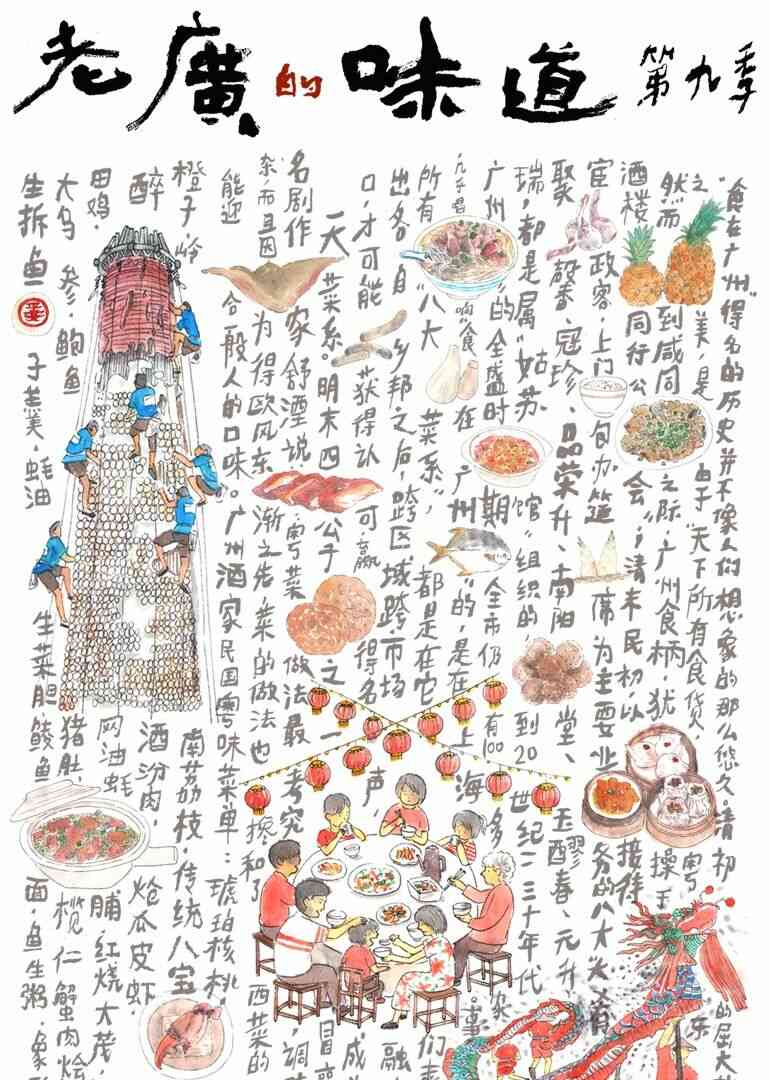 老廣的味道 第九季
"食在广州"得名的历史并不像人们想象的那么悠久。清初的屈大
之美,是由于"天下所有食货粤东
然而到咸同之际,广州食柄,犹操手
酒楼同行公会",清末民初,以接待
宦政客,上门包办筵席为主要业务的八大大肴
聚馨、冠珍、品荣升、南阳堂、玉醪春、元升
瑞,都是属"姑苏馆"组织的,到20世纪二三十年代
广州"的全盛时期全市仍有100多家
响"食在广州"的,是在上海。事
所有"八大菜系",都是在它们
出各自乡邦之后,跨区域跨市场融
口,才可能获得认可,赢得名声,成
一大菜系。明末四公子之一冒
名剧作家舒湮说:粤菜做法最考究调
杂,而且因为得欧风东渐之先,菜的做法也掺和了西菜的
能迎合一般人的口味。广州酒家民国粤味菜单:琥珀核桃,
橙子,岭南荔枝,传统八宝
醉酒汾肉,炝瓜皮虾,
田鸡,网油蚝脯,红烧大茂,
大乌参,鲍鱼猪肚,榄仁蟹肉烩
生拆鱼子羹,蚝油生菜胆鲮鱼面,鱼生粥,象